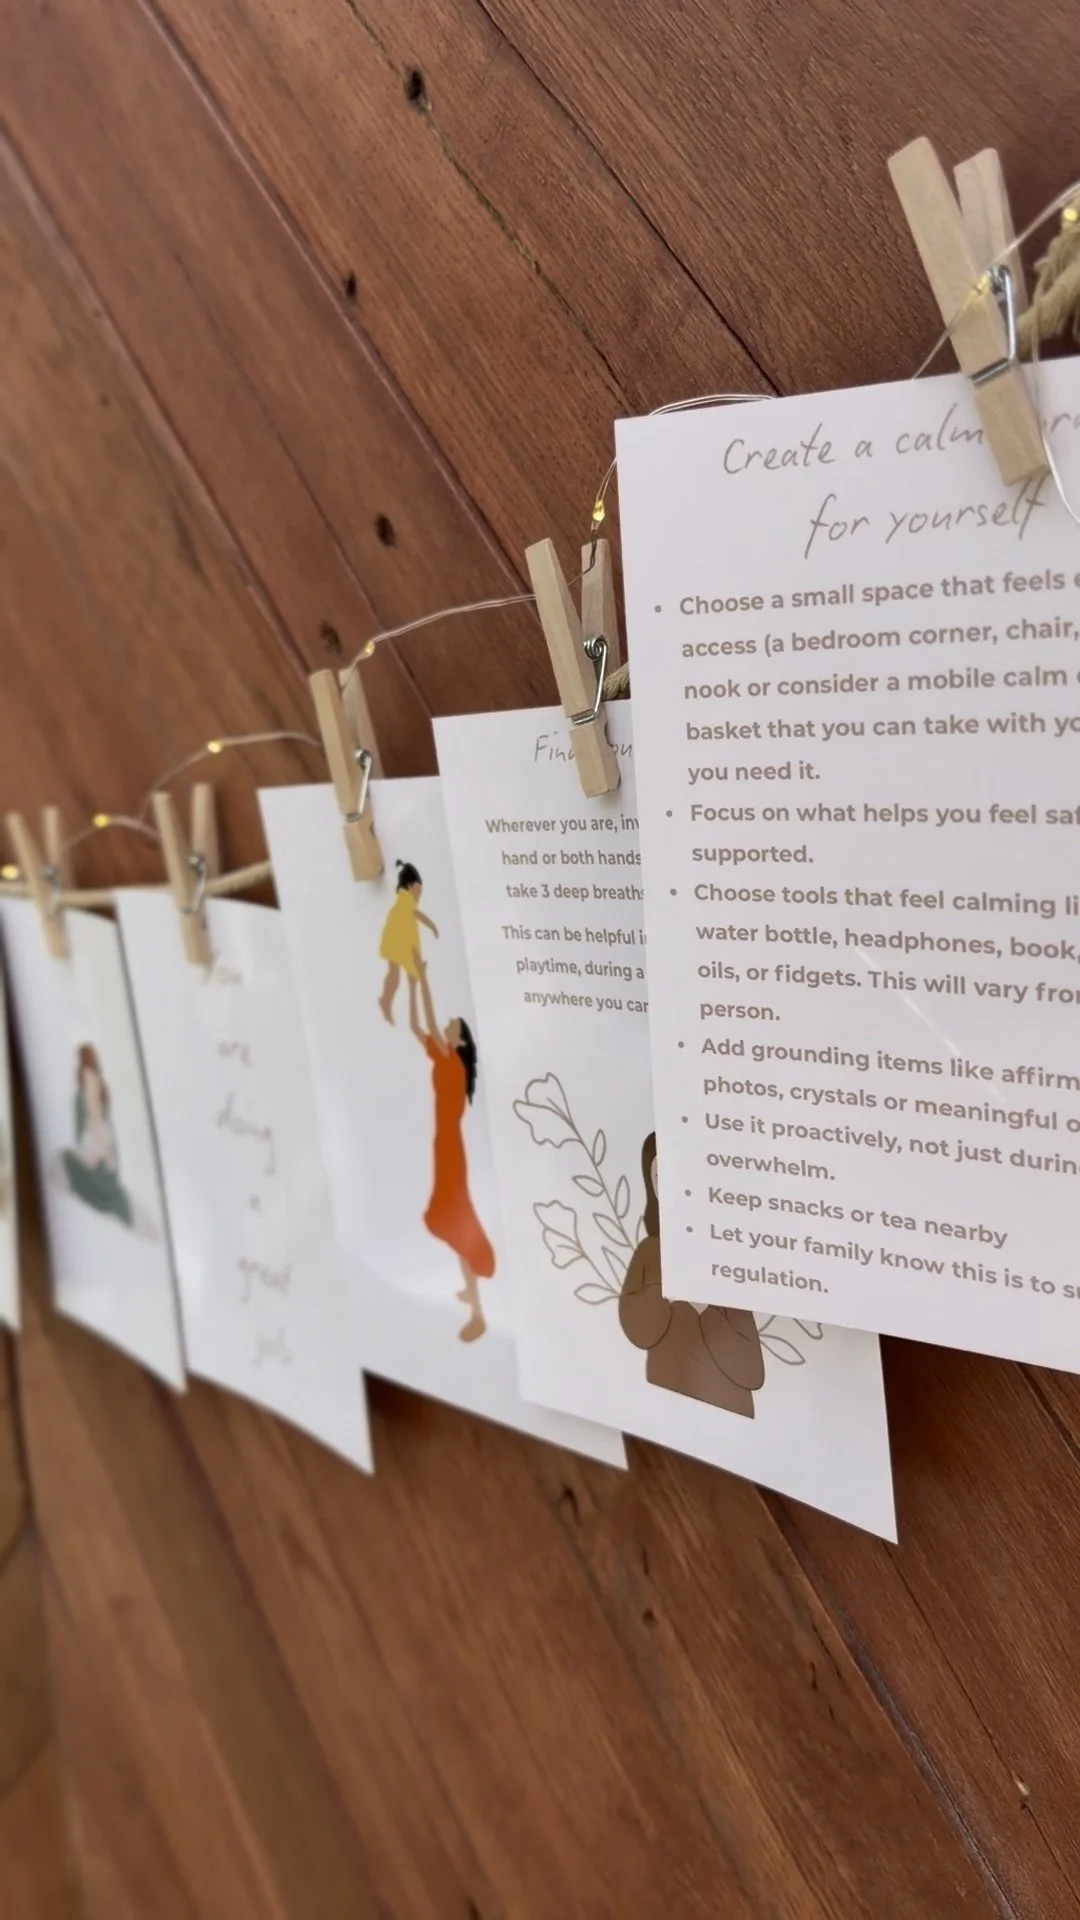 Create a calm
for yourself
• Choose a small space that feels
access (a bedroom corner, chair,
nook or consider a mobile calm
basket that you can take with
you need it.
• Focus on what helps you feel
supported.
• Choose tools that feel calming
water bottle, headphones, book,
oils, or fidgets. This will vary
person.
• Add grounding items like
photos, crystals or meaningful
• Use it proactively, not just
overwhelm.
• Keep snacks or tea nearby
• Let your family know this is to
regulation.
Wherever you are,
hand or both hands
take 3 deep
This can be helpful
playtime, during a
anywhere you
You
are
doing
a
great
job